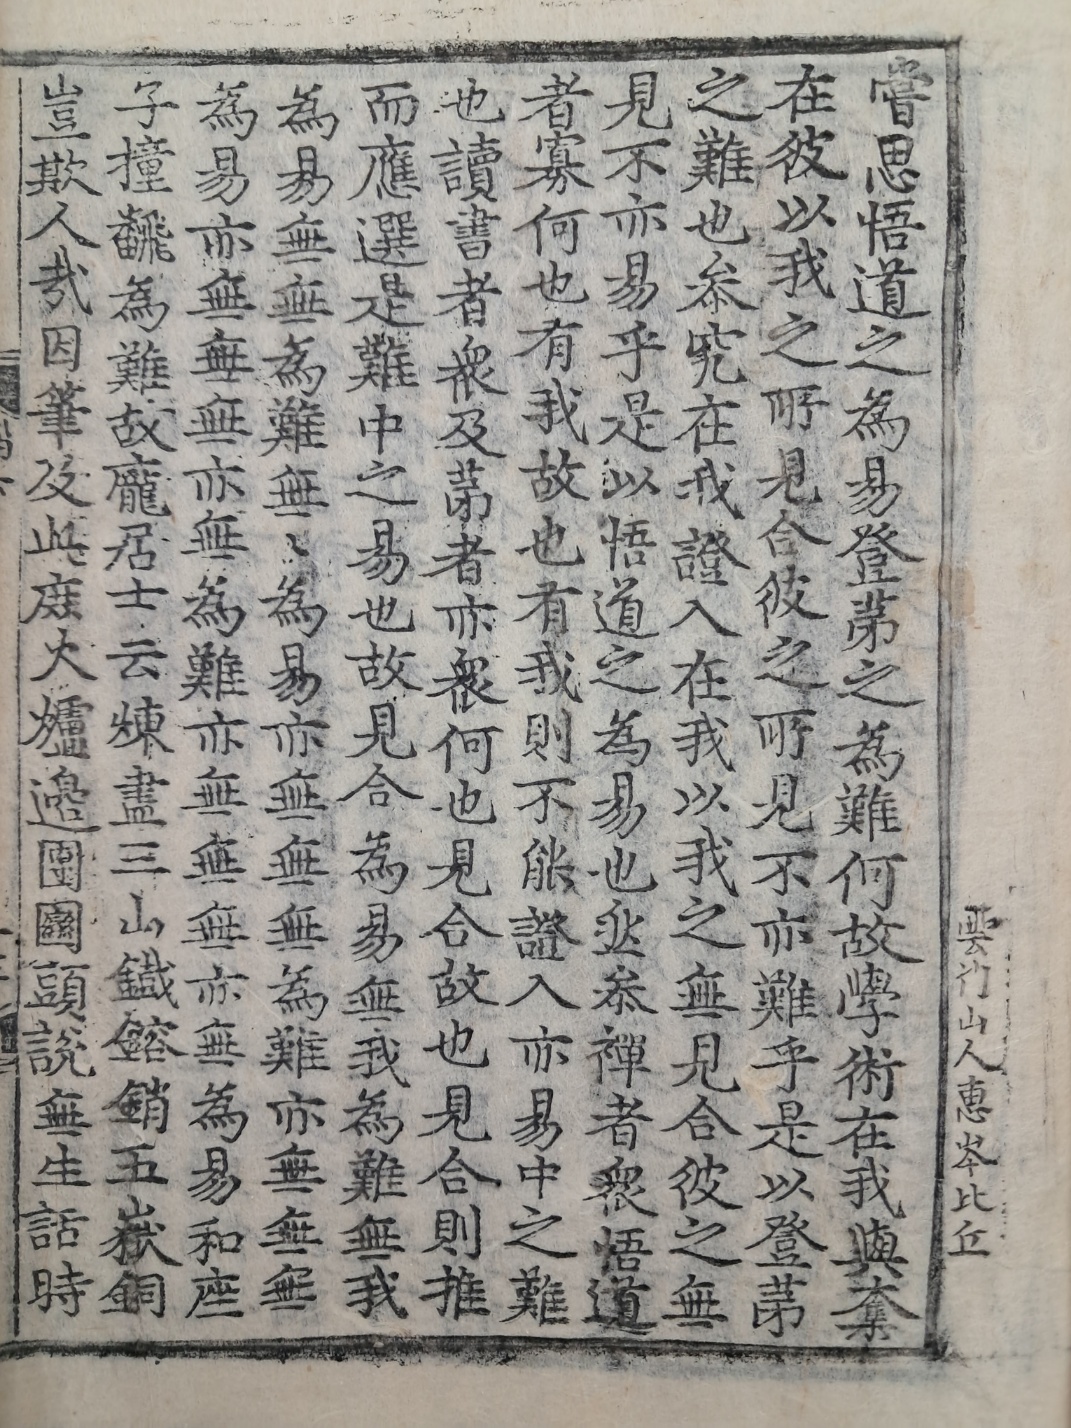 嘗思悟道之為易登苐之為難何故學術在我與奪
在彼以我之所見合彼之所見不亦難乎是以登苐
之難也叅究在我證入在我以我之無見合彼之無
見不亦易乎是以悟道之為易也然叅禪者衆悟道
者寡何也有我故也有我則不能證入亦易中之難
也讀書者衆及苐者亦衆何也見合故也見合則推
而應選是難中之易也故見合為易無我為難無我
為易無無為難無〻為易亦無無無為難亦無無無
為易亦無無無亦無為難亦無無無亦無為易和座
子撞飜為難故龐居士云煉盡三山鐵鎔銷五嶽銅
豈欺人哉因筆及此庭火爐邉團圝頭說無生話時
雲竹山人惠岑比丘